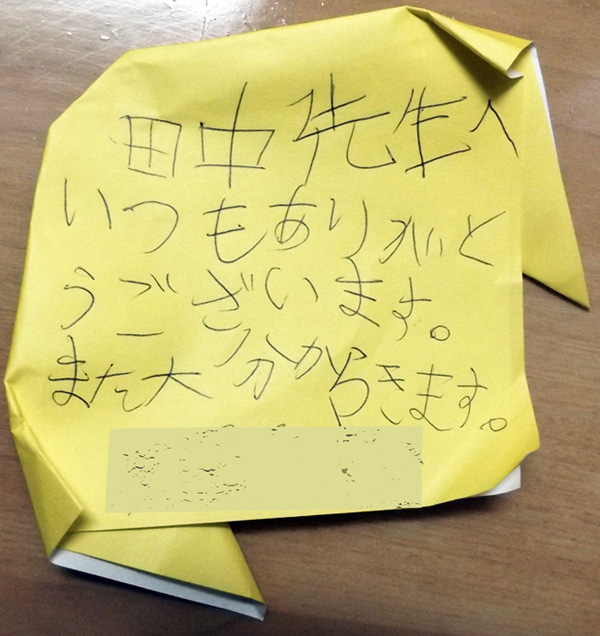 田中先生へ
いつもありがと
うございます。
また大分からきます。